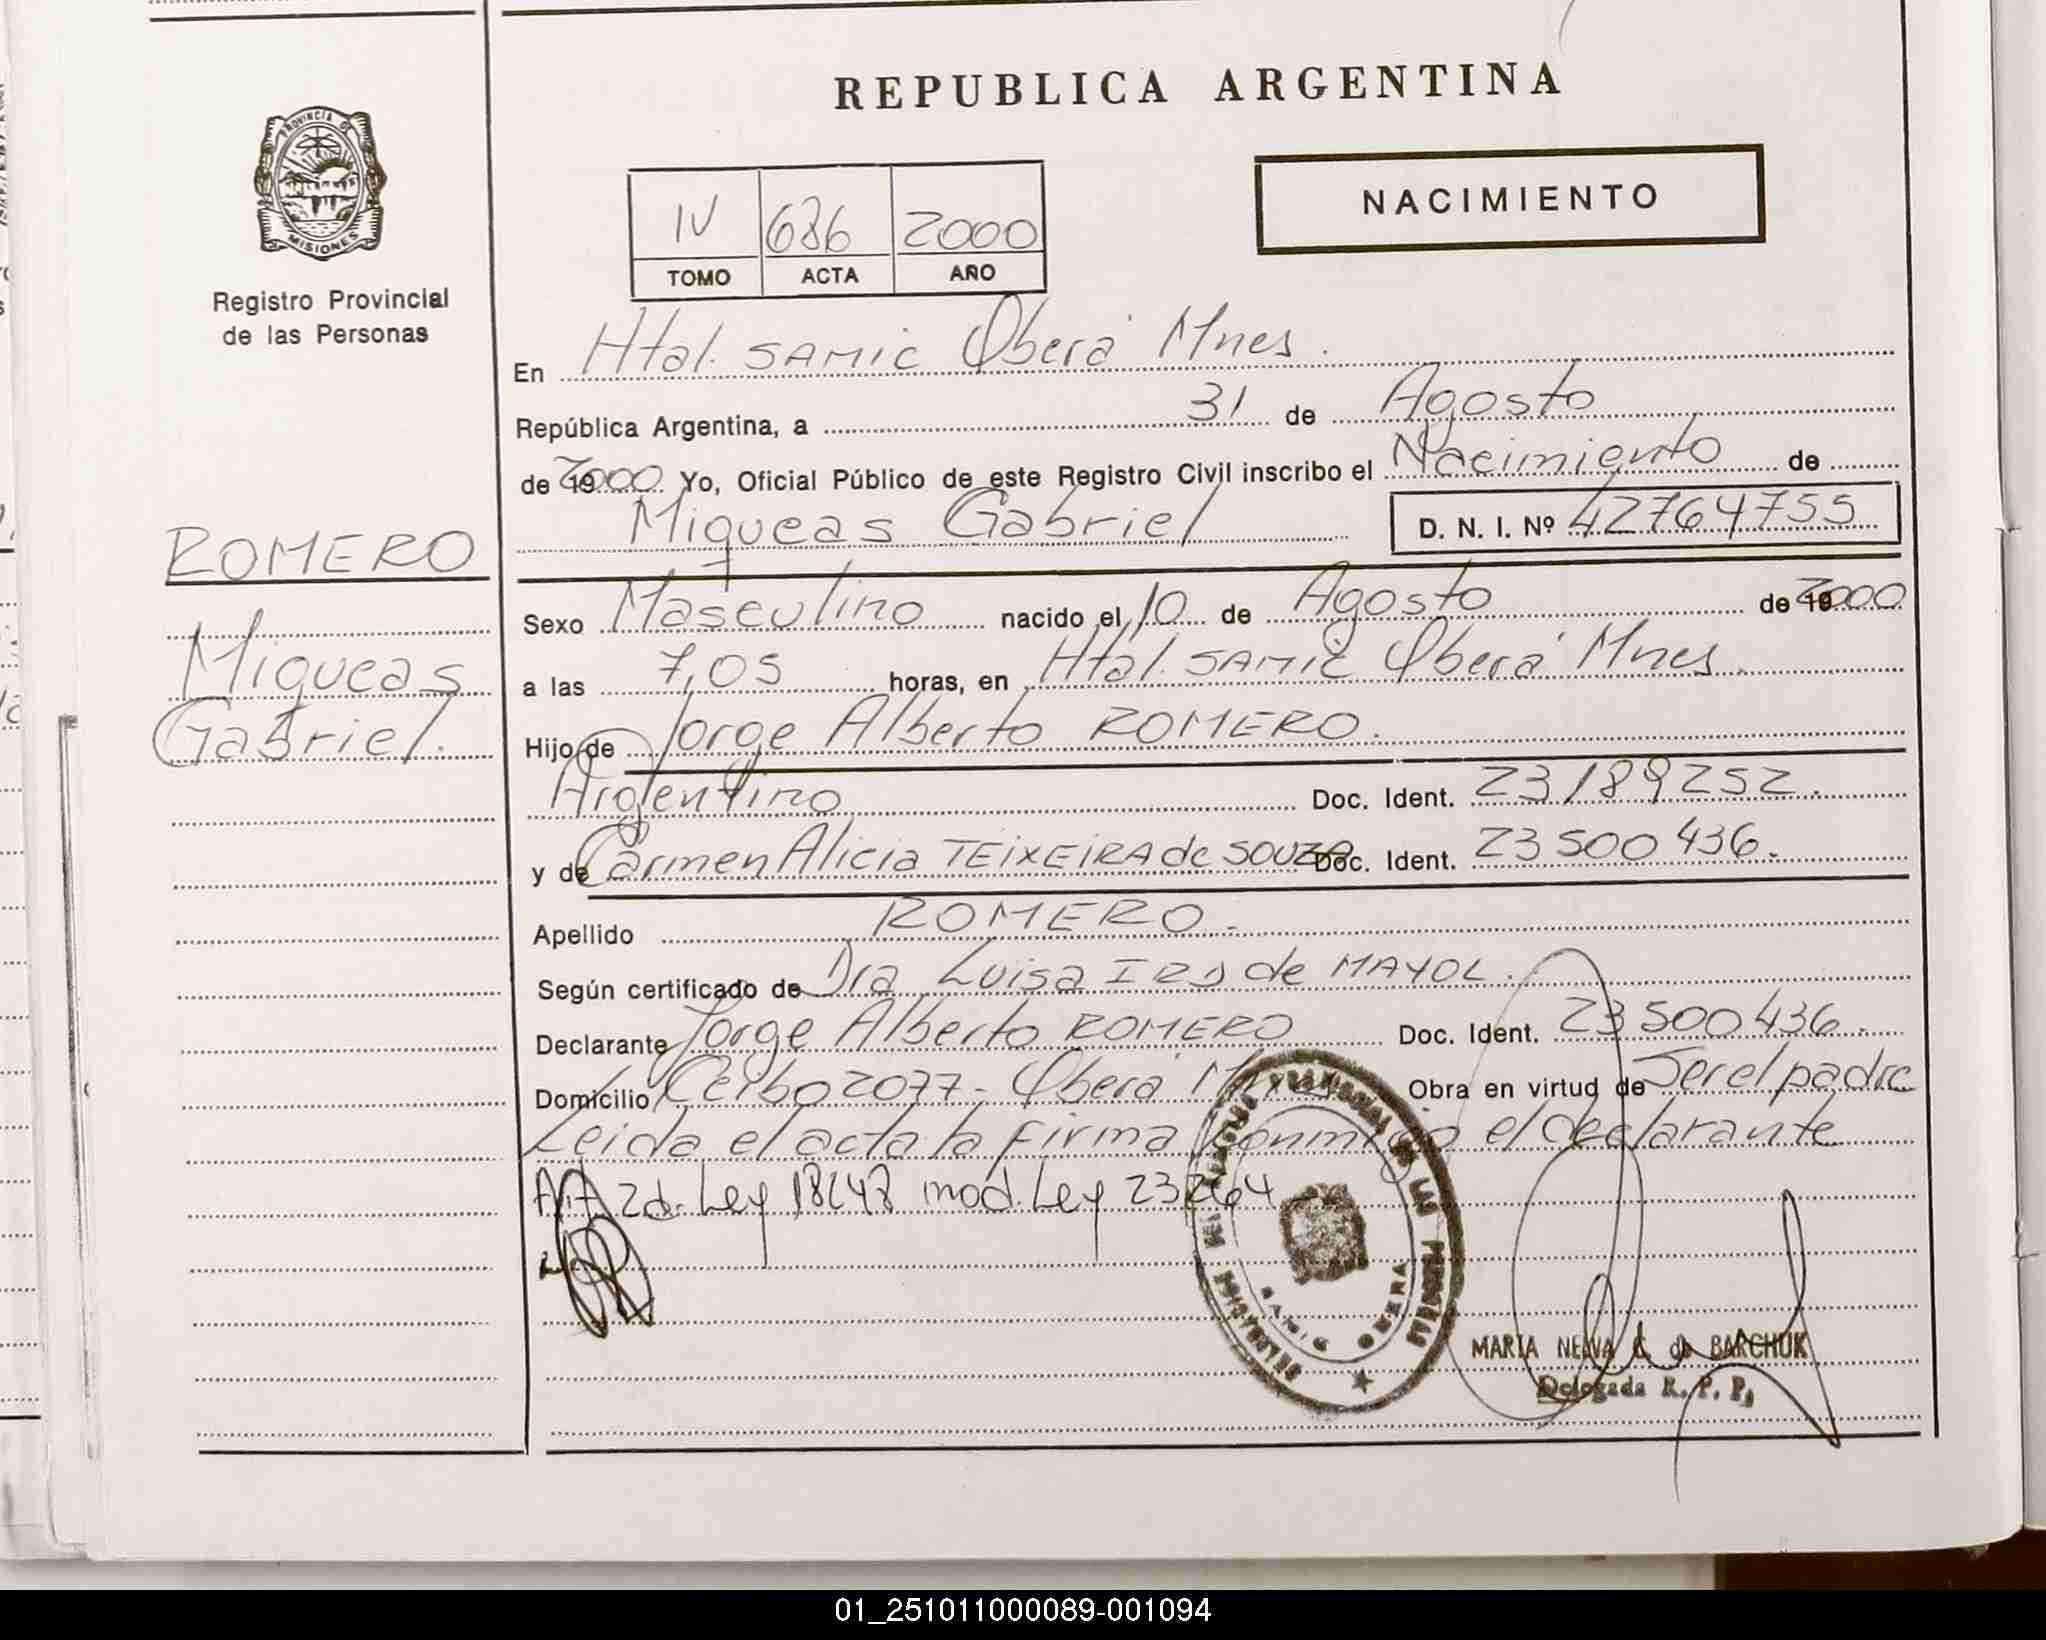 REPUBLICA ARGENTINA
NACIMIENTO
PROVINCIA DE
MISIONES
Registro Provincial
de las Personas
IV 686 2000
TOMO ACTA AÑO
En Htal. SAMIC Oberá Mnes.
República Argentina, a 31 de Agosto
de 2000 Yo, Oficial Público de este Registro Civil inscribo el Nacimiento de
Miqueas Gabriel D. N. I. Nº 42764755
ROMERO
Miqueas
Gabriel.
Sexo Masculino nacido el 10 de Agosto de 2000
a las 7,05 horas, en Htal. SAMIC Oberá Mnes.
Hijo de Jorge Alberto ROMERO.
Argentino Doc. Ident. 23189252.
y de Carmen Alicia TEIXEIRA de SOUZA Doc. Ident. 23500436.
Apellido ROMERO.
Según certificado de Dra Luisa de MAYOL.
Declarante Jorge Alberto ROMERO Doc. Ident. 23500436.
Domicilio Ceibo 2077- Oberá Obra en virtud de Ser el padre
Leida el acta la firma conmigo el declarante
Art 2d. Ley 18248 mod. Ley 23264
DELEGACION PROVINCIAL DE LAS PERSONAS
SAMIC OBERA
MARIA NELVA C de BARCHUK
Delegada R. P. P.
01_251011000089-001094